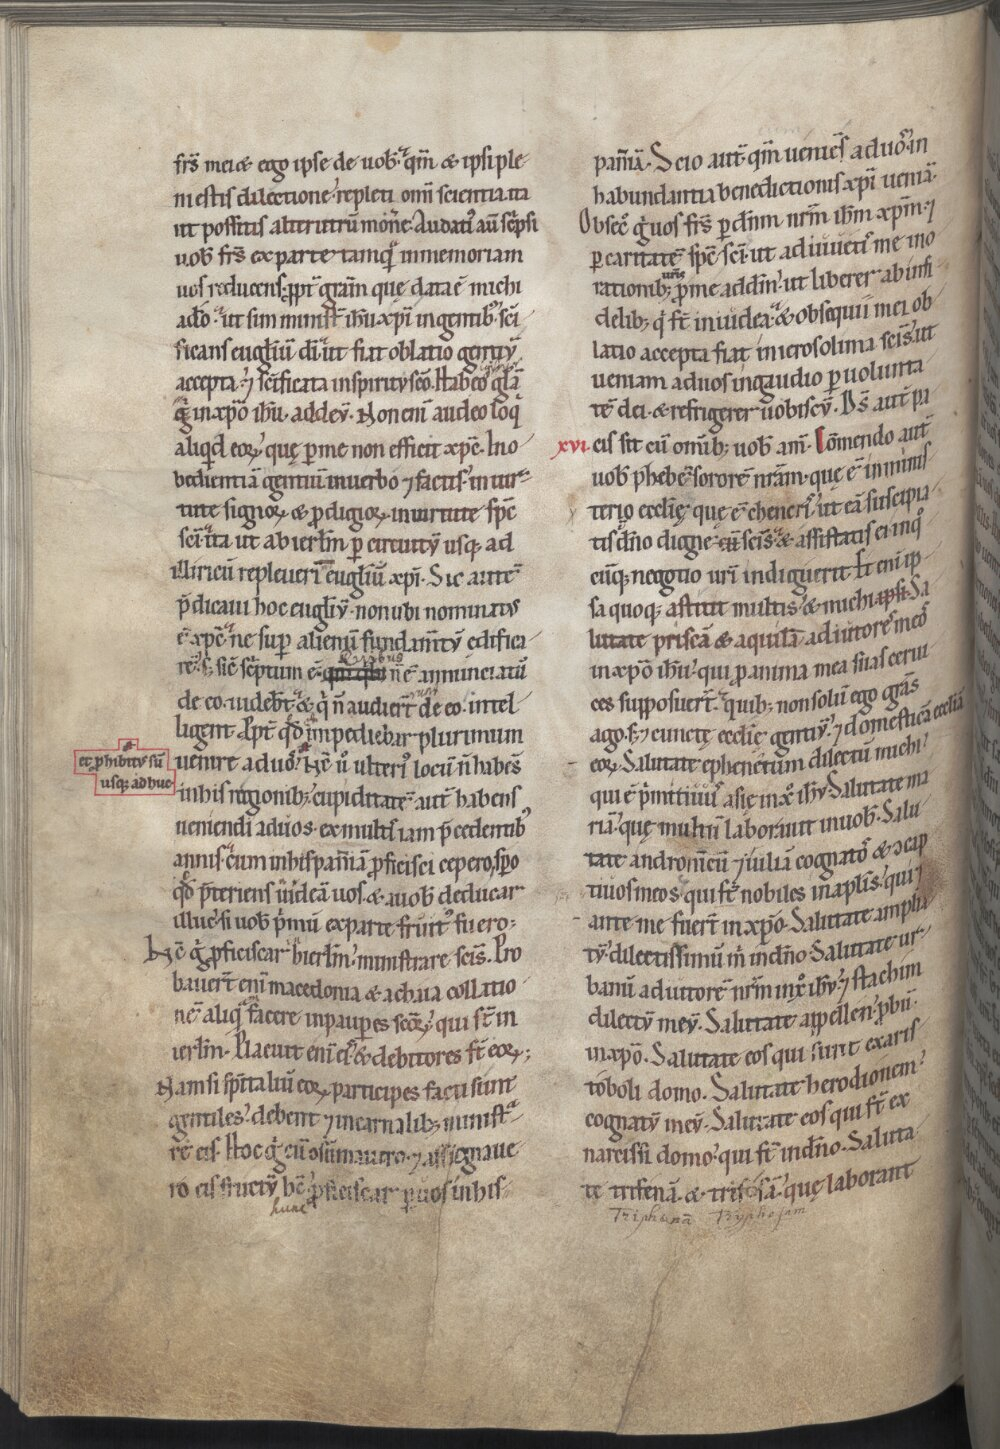 frs̄ mei & ego ipse de uob᷒ qm̄ & ipsi ple
ni estis dilectione repleti omī scientia ita
ut possitis alterutrū mone᷒. Audati᷒ aū sc̄psi
u.ob̄ frs̄ ex parte tamq̄ in memoriam
uos reducens ꝓpt̄ grām que data ē michi
a dō ut sim minist̄ ih̄u xp̄i in gentib᷒ sc̄i
ficans eugl̄iū dī ut fiat oblatio gentiū
accepta ⁊ sc̄ificata in spiritu sc̄o. Habeo g̊ gl̄ā
in xp̄o ih̄u. ad deū. Non enī audeo loq̄
aliqd̄ eoꝝ quę ꝑ me non efficit xp̄c. In o
bedientiā gentiū in uerbo ⁊ factis in uir
tute signoꝝ & ꝓdigioꝝ in uirtute sp̄c
sc̄i ita ut ab ierl̄m ꝑ circuitū usq; ad
illiricū repleueri eugl̄iū xp̄i. Sic autē
p̄dicaui hoc eugl̄iū non ubi nominat᷒
ē xp̄c ne sup̄ alienū fundamentū edifica
rē s; sic sc̄ptum ē quibus n̄ ē annunciatū
de eo uidebt̄ & q̄ n̄ audiert̄ de eo intel
ligent. Ppt̄ qd̄ impediebar plurimum
uenire ad uos
et ꝓhibit᷒ sū
usq; adhuc
Nc̄ ū ulteri᷒ locū n̄ habēs
in his regionib; cupiditatē aut̄ habens
ueniendi ad uos ex multis iam p̄cedentib᷒
annis cum in hispaniā ꝓficisci cepero, sp̄o
qd̄ p̄teriens uideā uos. & a uob̄ deducar
illuc si uob̄ p̄mū ex parte fruit᷒ fuero:
Nc̄ g̊ ꝓficiscar hierl̄m ministrare scis̄. Pro
bauert̄ enī macedonia & achaia collatio
nē aliq̄ facere in pauꝑes sc̄oꝝ qui st̄ in
ierl̄m. Placuit enī eis & debitores st̄ eoꝝ;
Nam si sp̄italiū eoꝝ participes facti sunt
gentiles debent ⁊ in carnalib; minist̄
re eis. Hoc g̊ cū osūmauero ⁊ assignaue
ro eis fructū hc̄ ꝓficiscar ꝑ uos in his
hunc
paniā. Scio aut̄ qm̄ uenies ad uos in
habundantia benedictionis xp̄i ueniā.
Obsec̄ g̊ uos frs̄ ꝑ dn̄m nrm̄ ih̄m xp̄m ⁊
ꝑ caritatē sp̄c sc̄i ut adiuuetis me in o
rationib; uris̄ ꝓ me ad dm̄ ut liberer ab infi
delib; q̄ st̄ in iudea & obsequii mei ob
latio accepta fiat in ierosolima scis̄ ut
ueniam ad uos in gaudio ꝑ uolunta
tē dei. & refrigerer uobiscū. Ds̄ aut̄ pa
xvi cis sit cū omib; uob᷒ am̄. Comendo aut̄
uob᷒ phebē sororē nrām que ē in minis
terio ecclię que ē chencris ut eā suscipia
tis dn̄o digne scis̄ & assistatis ei in q̊
cūq; negotio uri indiguerit. Et enī ip
sa quoq; astitit multis & michi ipsi. Sa
lutate priscā & aquilā adiutores meos
in xp̄o ih̄u qui ꝓ anima mea suas cerui
ces supposuert̄. quib; non solū ego grās
ago. s; ⁊ cuncte ecclie gentiū ⁊ domesticā ecclīā
eoꝝ. Salutate ephenetum dilectū michi
qui ē p̄mitiuus asie in xo ih̄u. Salutate ma
riā quę multū laborauit in uob᷒. Salu
tate andronicū ⁊ iuliā cognatos & ɔcap
tiuos meos. qui st̄ nobiles in apl̄is qui ⁊
ante me fuert̄ in xp̄o. Salutate amplia
tū dilectissimū m̄ in dn̄o. Salutate ur
banū adiutorē nrm̄ in xo ih̄u ⁊ stachim
dilectū meū. Salutate appellen ꝓbū
in xp̄o. Salutate eos qui sunt ex aris
toboli domo. Salutate herodionem
cognatū meū. Salutate eos qui st̄ ex
narcissi domo qui st̄ in dn̄o. Saluta
te trifenā. & trifosā. quę laborant
Triphænā Tryphosam